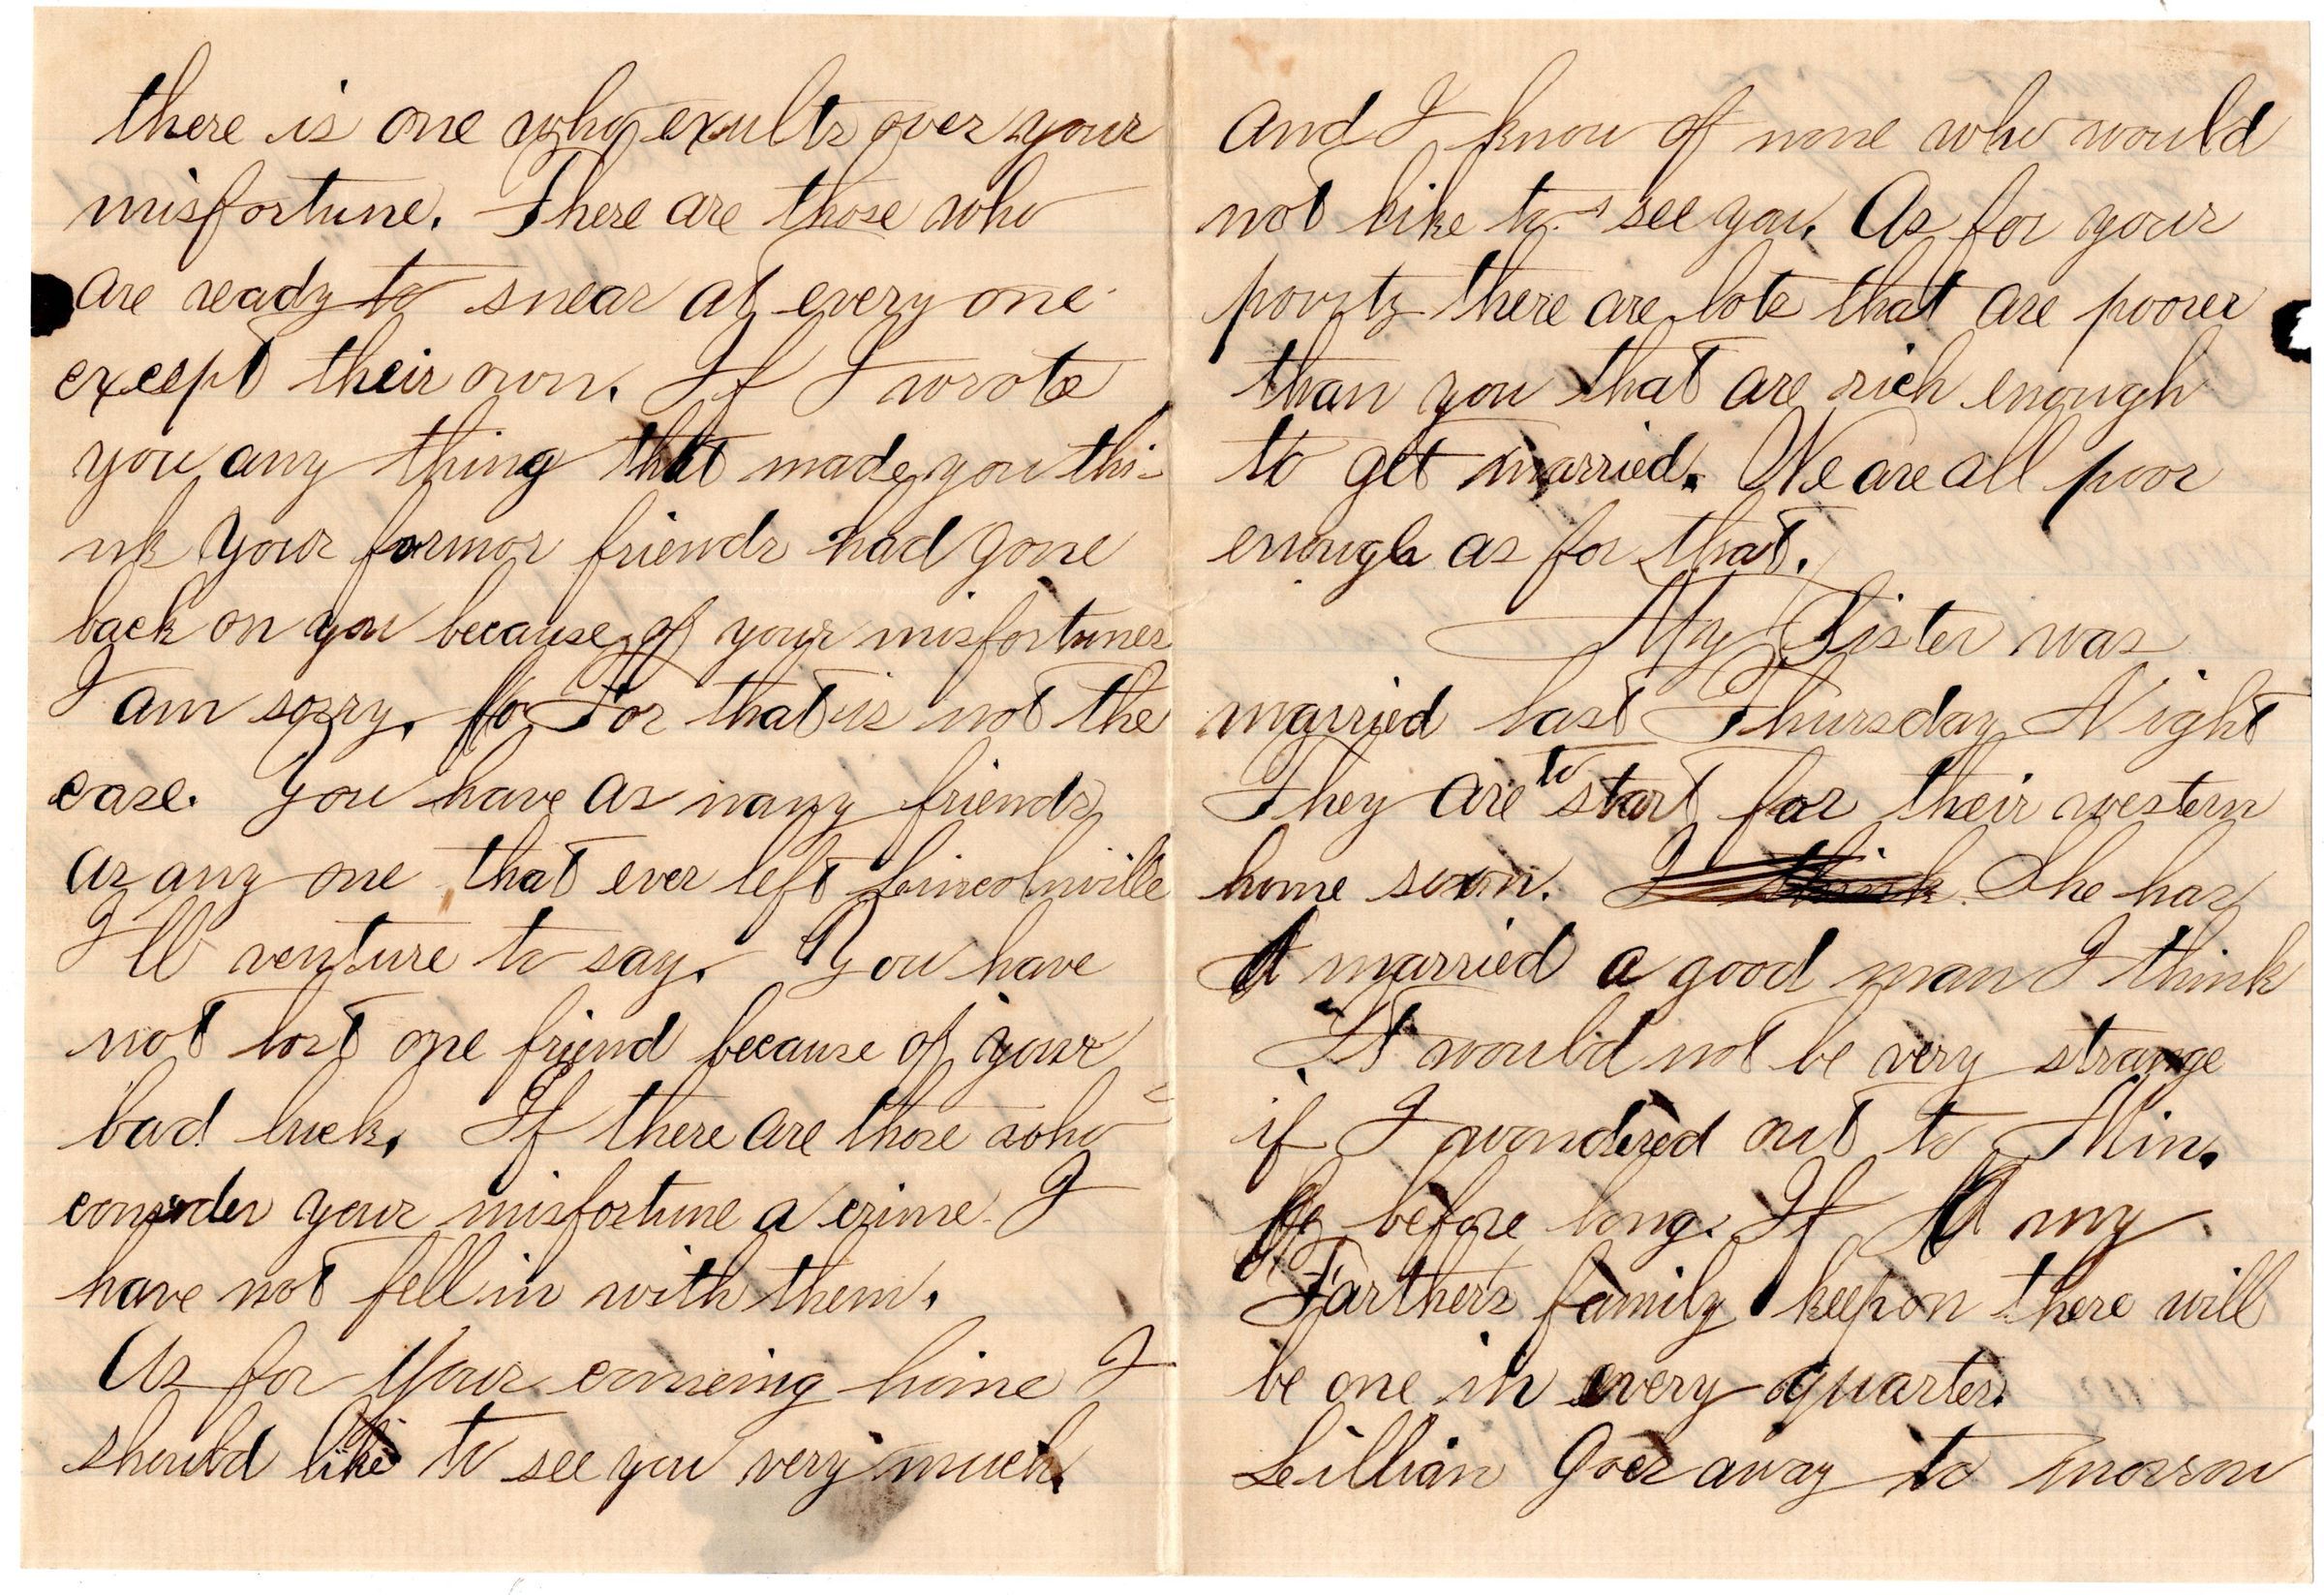 there is one who exults over your
misfortune. There are those who
are ready to snear at every one
except their own. If I wrote
you any thing that made you thi-
nk your formor friends had gone
back on you because of your misfortunes
I am sorry. fo For that is not the
case. You have as many friends
as any one that ever left Lincolnville
I'll venture to say. You have
not lost one friend because of your
bad luck. If there are those who
consider your misfortune a crime I
have not fell in with them.
As for Your comeing home I
should like to see you very much.
and I know of none who would
not like to see you. As for your
povrty there are lots that are poorer
than you that are rich enough
to get married. We are all poor
enough as for that.
My Sister was
married last Thursday Night
They are to start for their western
home soon. I think. She has
married a good man I think
It would not be very strange
if I wondered out to Min.
before long. If my
Farther's family keep on there will
be one in every quarter.
Leillian Goes away to morrow